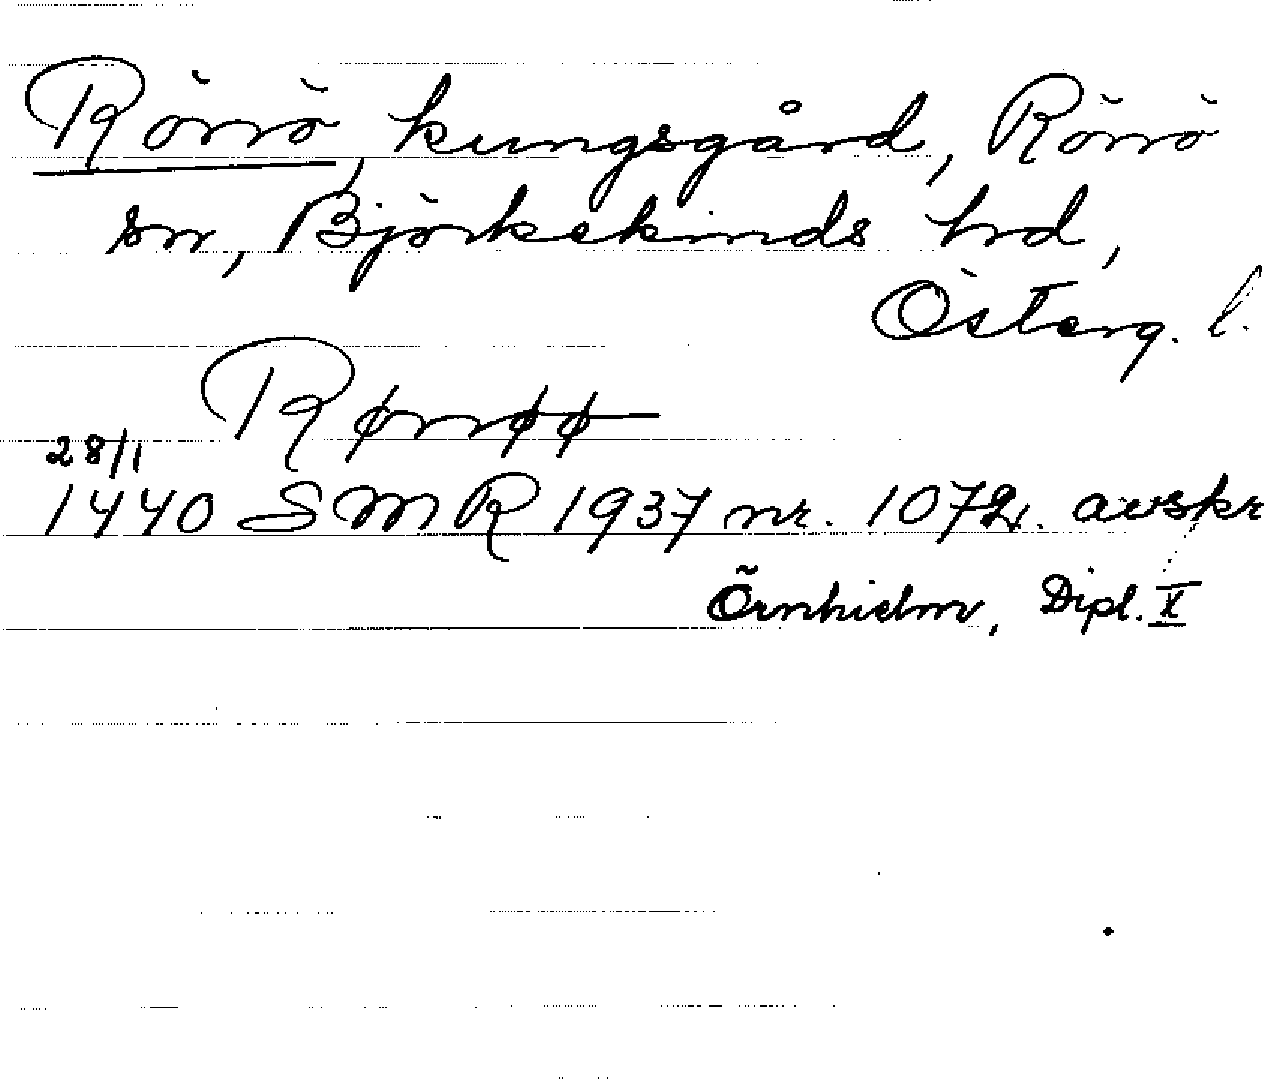 Rönö, kungsgård, Rönö
sn, Björkekinds hrd,
Österg. l.
Rønøø
28/1
1440 SMR 1937 nr. 1072. avskr
Örnhielm, Dipl. II